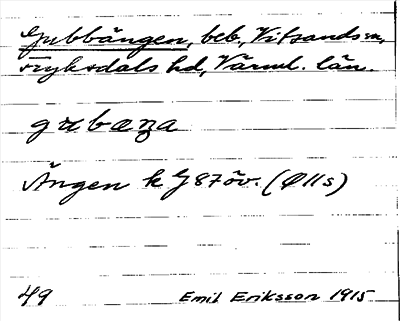 Gubbängen, beb, Vitsands sn,
Fryksdals hd, Värml. län.
gubæŋa
Ängen k J 87 öv. (Ølls)
49 Emil Eriksson 1915